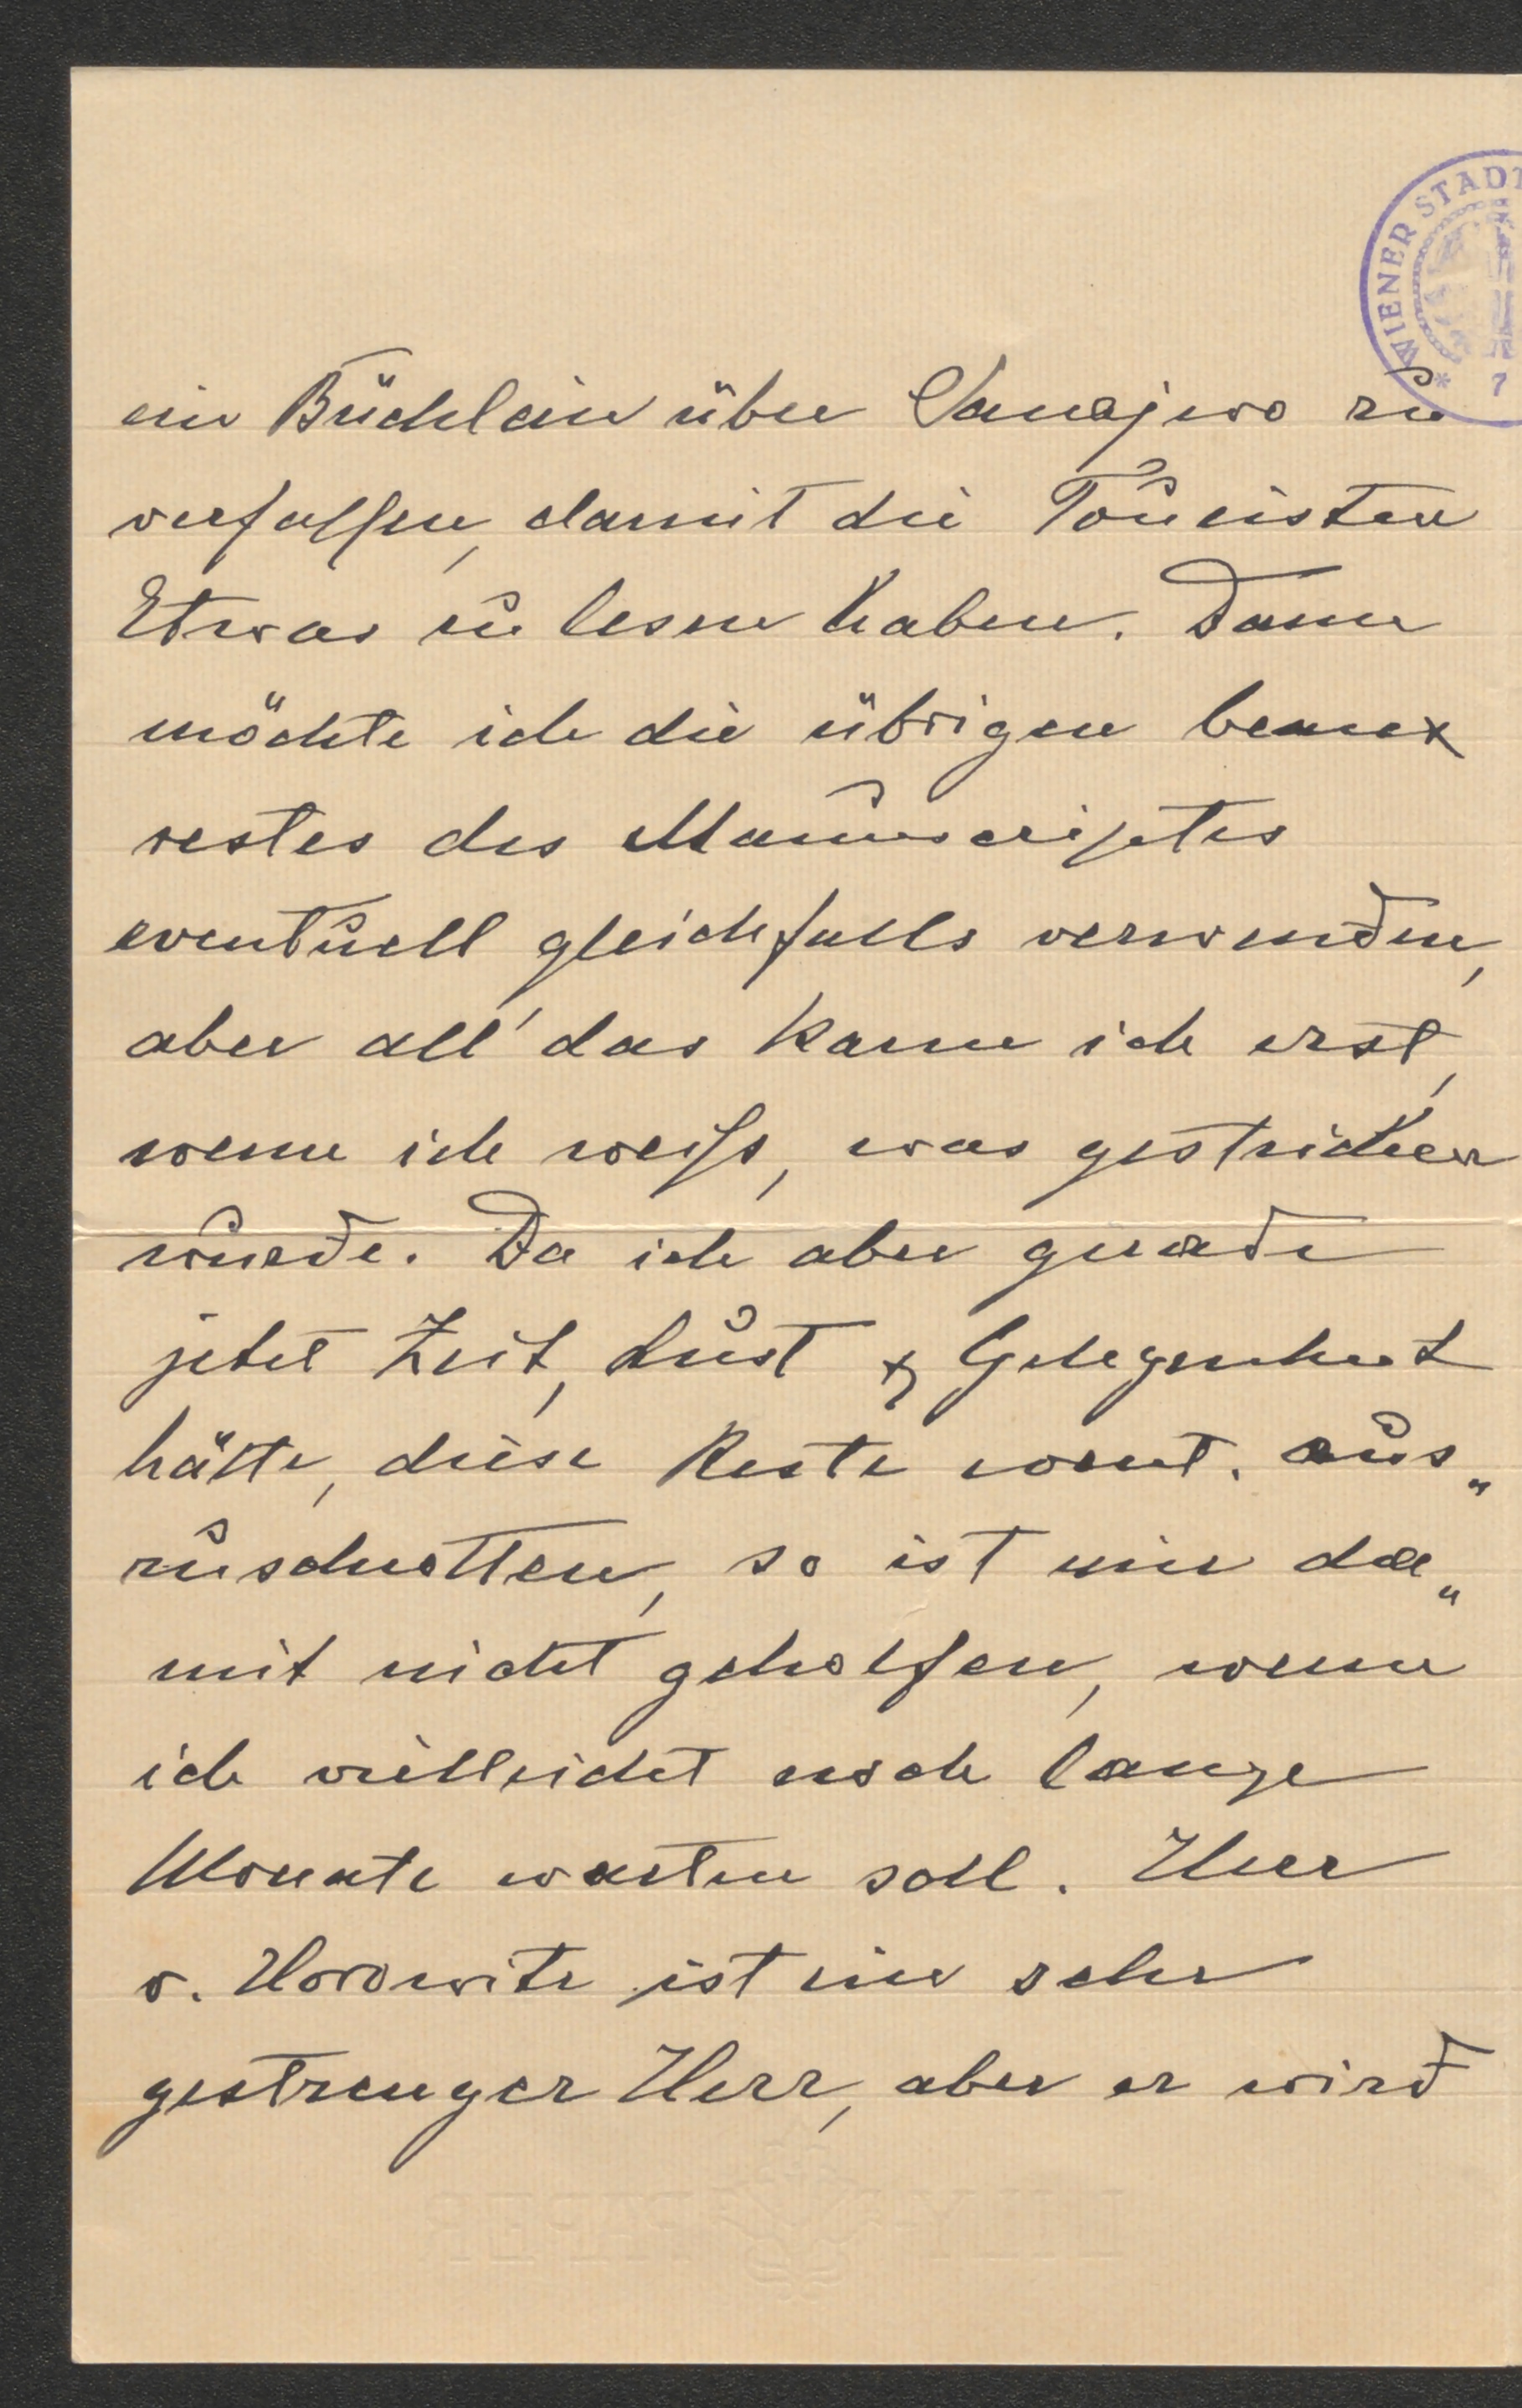 WIENER STADT
* 7
ein Büchlein über Sarajewo zu
verfassen, damit die Touristen
Etwas zu lesen haben. Dann
möchte ich die übrigen beaux
restes des Manuscriptes
eventuell gleichfalls verwenden,
aber all' das kann ich erst,
wenn ich weiss, was gestrichen
wurde. Da ich aber gerade
jetzt Zeit, Lust & Gelegenheit
hätte, diese Reste event. aus„
zuschrotten, so ist mir da„
mit nicht geholfen, wenn
ich vielleicht noch lange
Monate warten soll. Herr
v. Horowitz ist ein sehr
gestrenger Herr, aber er wird